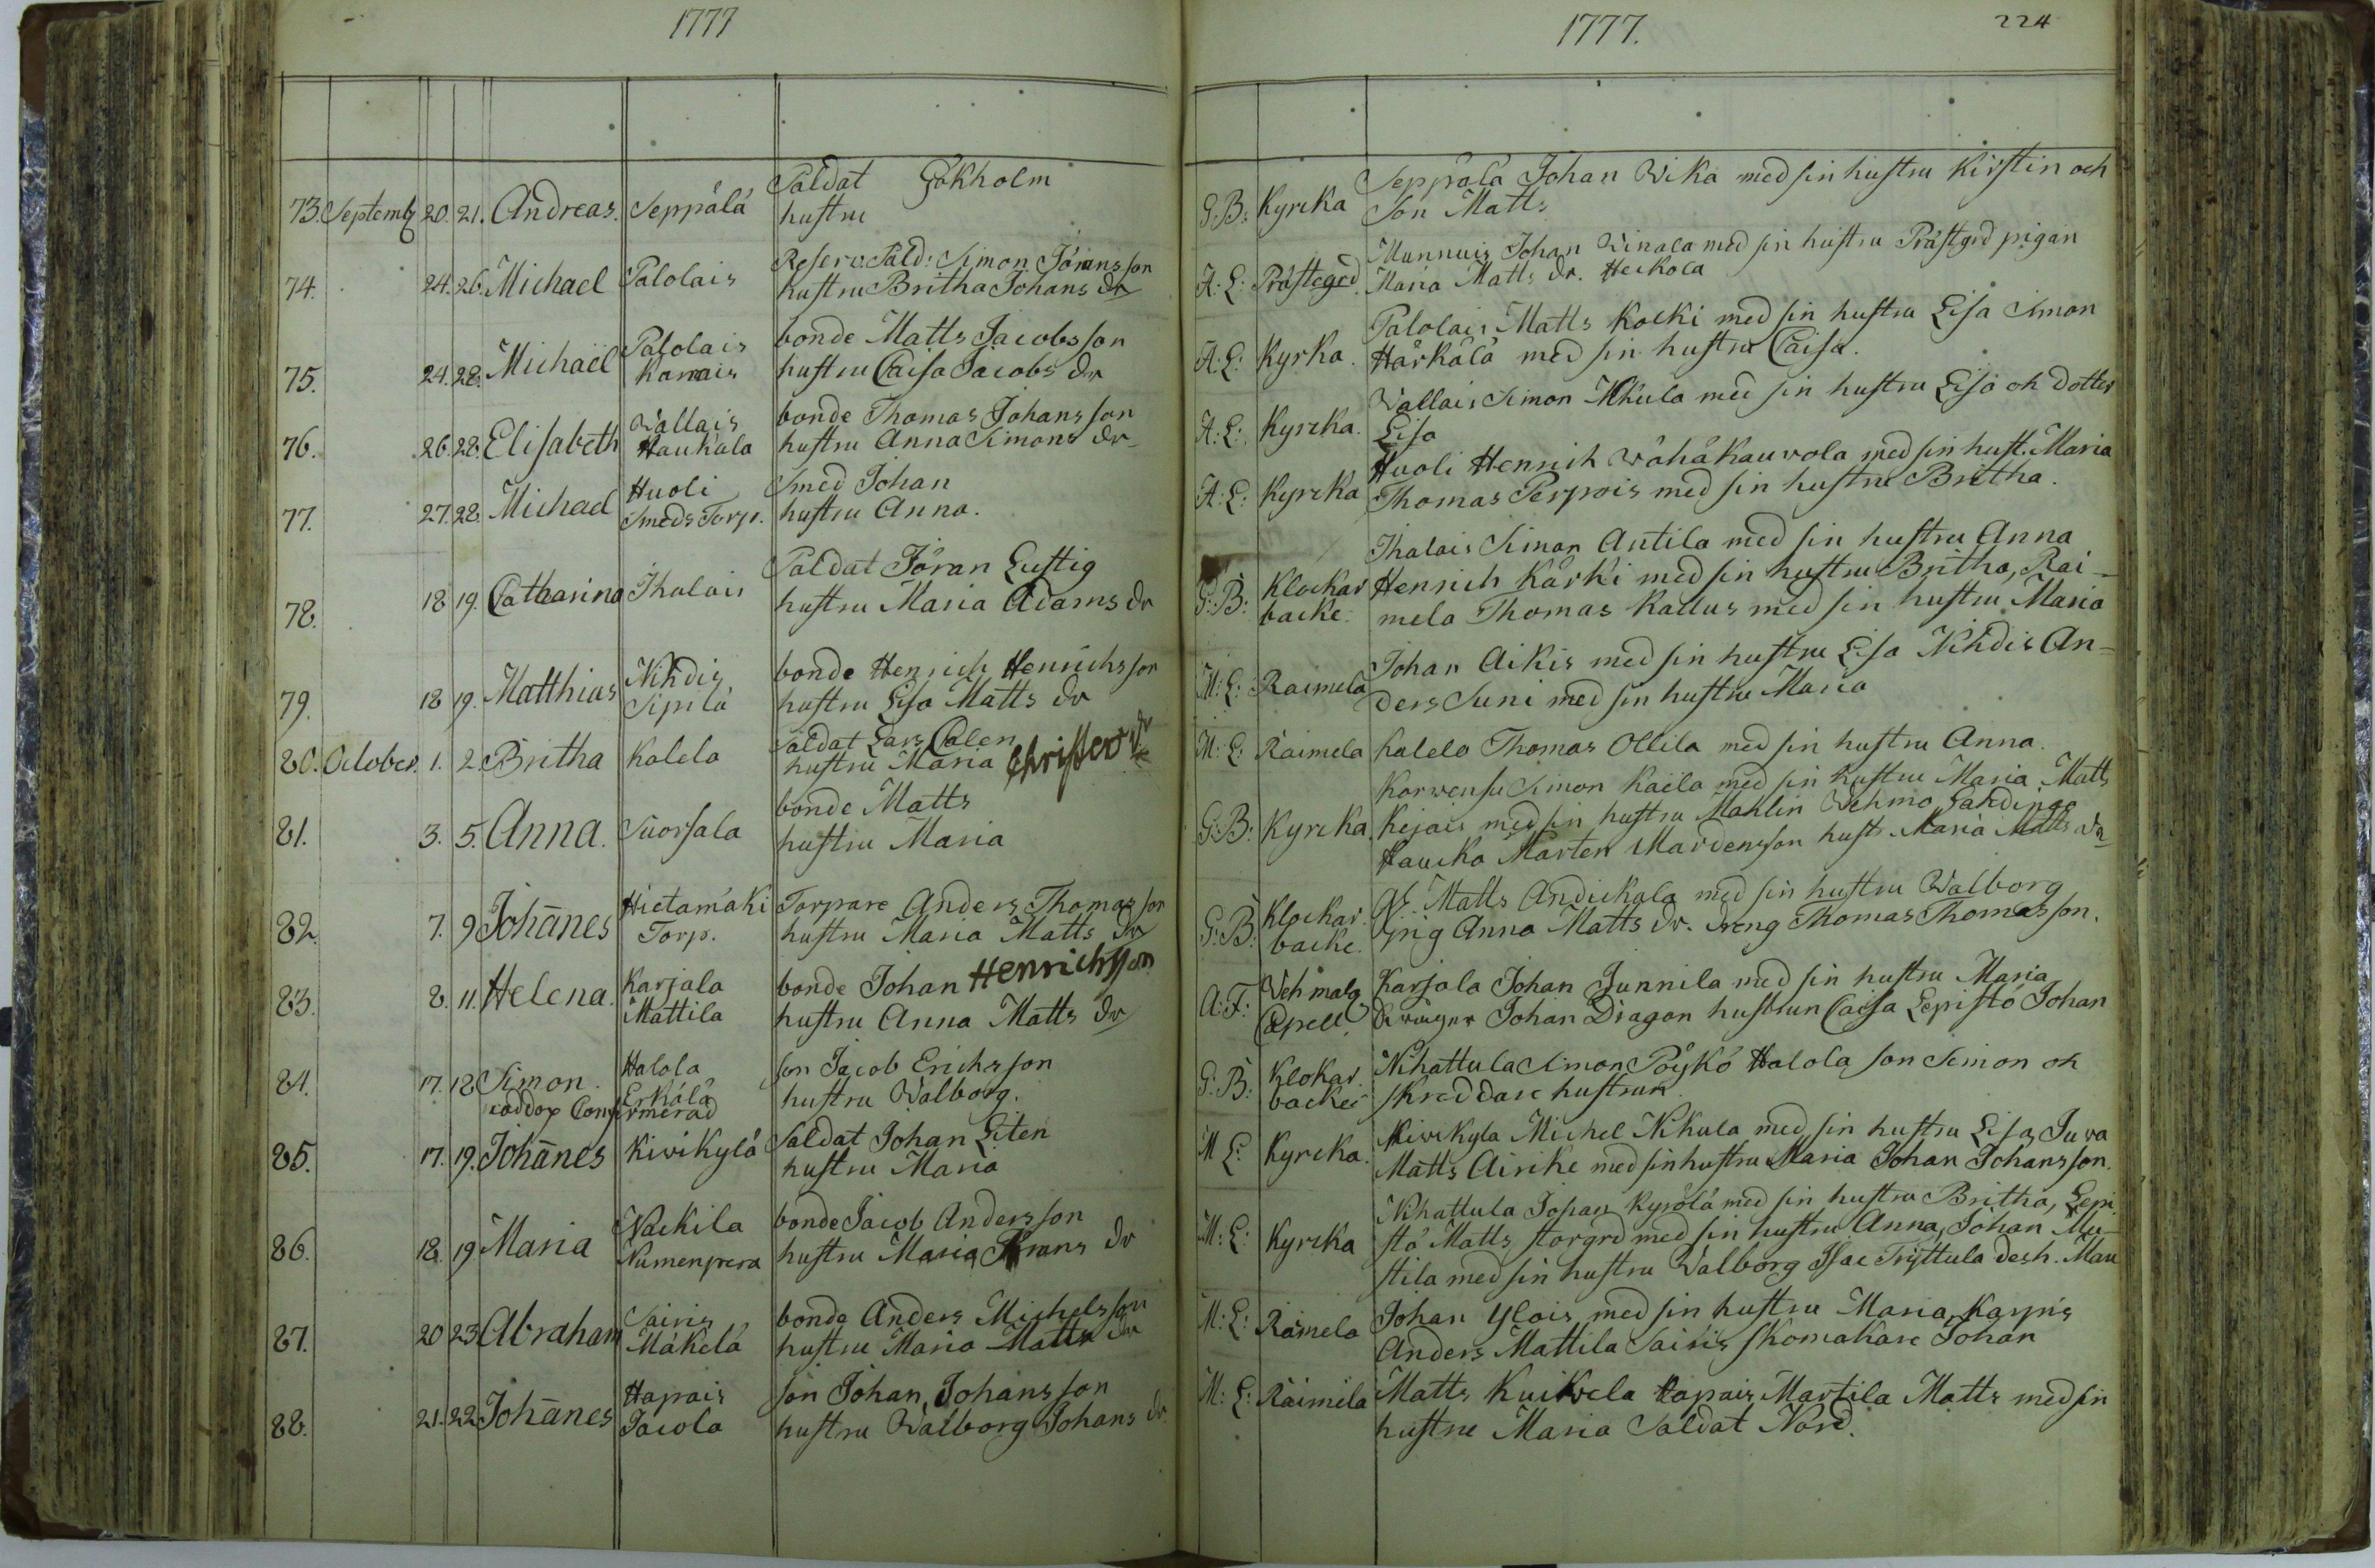 1777
Saldat Gökholm
73. Septemb 20. 21. Andreas. Seppälä hustru
Reserv: Sald: Simon Jöransson
74. 24. 26. Michael Palolais hustru Britha Johans dr
Palolais bonde Matts Jacobsson
75. 24. 28. Michaël Karrais hustru Caisa Jacobs dr
Wallais bonde Thomas Johansson
76. 26. 28. Elisabeth Haukala hustru Anna Simons dr
Huoli Smed Johan
77. 27. 28. Michael Smeds Torp. hustru Anna.
Saldat Jöran Lustig
78. 18 19. Catharina Ihalais hustru Maria Adams dr
Nihdis bonde Henrich Henrichsson
79. 18 19. Matthias Sipilä hustru Lisa Matts dr
Saldat Lars Calen
80. October. 1. 2. Britha Kalela hustru Maria Christer dr
bonde Matts
81. 3. 5. Anna. Suorsala hustru Maria
Hietamäki Torpare Anders Thomasson
82. 7. 9 Johānes Torp. hustru Maria Matts dr
Karjala bonde Johan Henrichsson
83. 8. 11. Helena. Mattila hustru Anna Matts dr
Halola son Jacob Erichsson
84. 17. 18 Simon. Erkälä hustru Walborg.
nöddop Confirmerad
85. 17. 19. Johānes Kivikylä Saldat Johan Liten
hustru Maria
Nackila bonde Jacob Andersson
86. 18. 19 Maria Numenpera hustru Maria Krans dr
Sairis bonde Anders Michelsson
87. 20 23 Abraham Mäkelä hustru Maria Matts dr
Hapais son Johan Johansson
88. 21. 22 Johānes Jacola hustru Walborg Johans dr.
1777. 224
Seppälä Johan Wika med sin hustru Kirstin och
G:B: Kyrcka Son Matts
Munnuis Johan Winala med sin hustru Prästgrd pigan
A:L: Prästegrd. Maria Matts dr. Heikola
Palolais Matts Kocki med sin hustru Lisa Simon
A:L: Kyrka. Härkälä med sin hustru Caisa.
Wallais Simon med sin hustru Lisa oh dotter
A:L: Kyrcka. Lisa
Huoli Henrich Wähäkauvola med sin hust. Maria
A:L: Kyrcka Thomas Perpois med sin hustru Britha.
Ihalais Simon Antila med sin hustru Anna
G:B: Klockar Henrich Kärki med sin hustru Britha, Rai-
backe. mela Thomas Kallus med sin hustru Maria
Johan Aikis med sin hustru Lisa Nihdis An-
M:L: Raimela ders Suni med sin hustru Maria
M:L: Raimela Kalela Thomas Ollila med sin hustru Anna.
Korwensu Simon Kaila med sin hustru Maria Matts
G:B: Kyrcka Kejais med sin hustru Mahlin Wehmo
Haucka Mårten Mårdensson hust. Maria Matts dr
Matts Andickala med sin hustru Walborg
G:B: Klockar backe. pig Anna Matts dr. dreng Thomas Thomasson.
A:F: Vehmalg Capell Karjala Johan Junnila med sin hustru Maria
Johan Dragon hustrun Caisa Lepistö Johan
G:B: Klokar. Nihattula Simon Pöykö Halola son Simon oh
backei skreddare hustrun
M L: Kyrcka. Kivikyla Michel Nikula med sin hustru Lisa, Juva
Matts Airike med sin hustru Maria Johan Johansson.
Nihattula Johan Kyrölä med sin hustru Britha, Lepi
M:L: Kyrcka stö Matts storgrd med sin hustru Anna, Johan Mu-
stila med sin hustru Walborg Isac Tryttula
M:L: Raimela Johan Ylois med sin hustru Maria, Karpis
Anders Mattila Sairis Skomakare Johan
M:L: Raimela Matts Kuikela Hapais Martila Matts med sin
hustru Maria Saldat Nord.